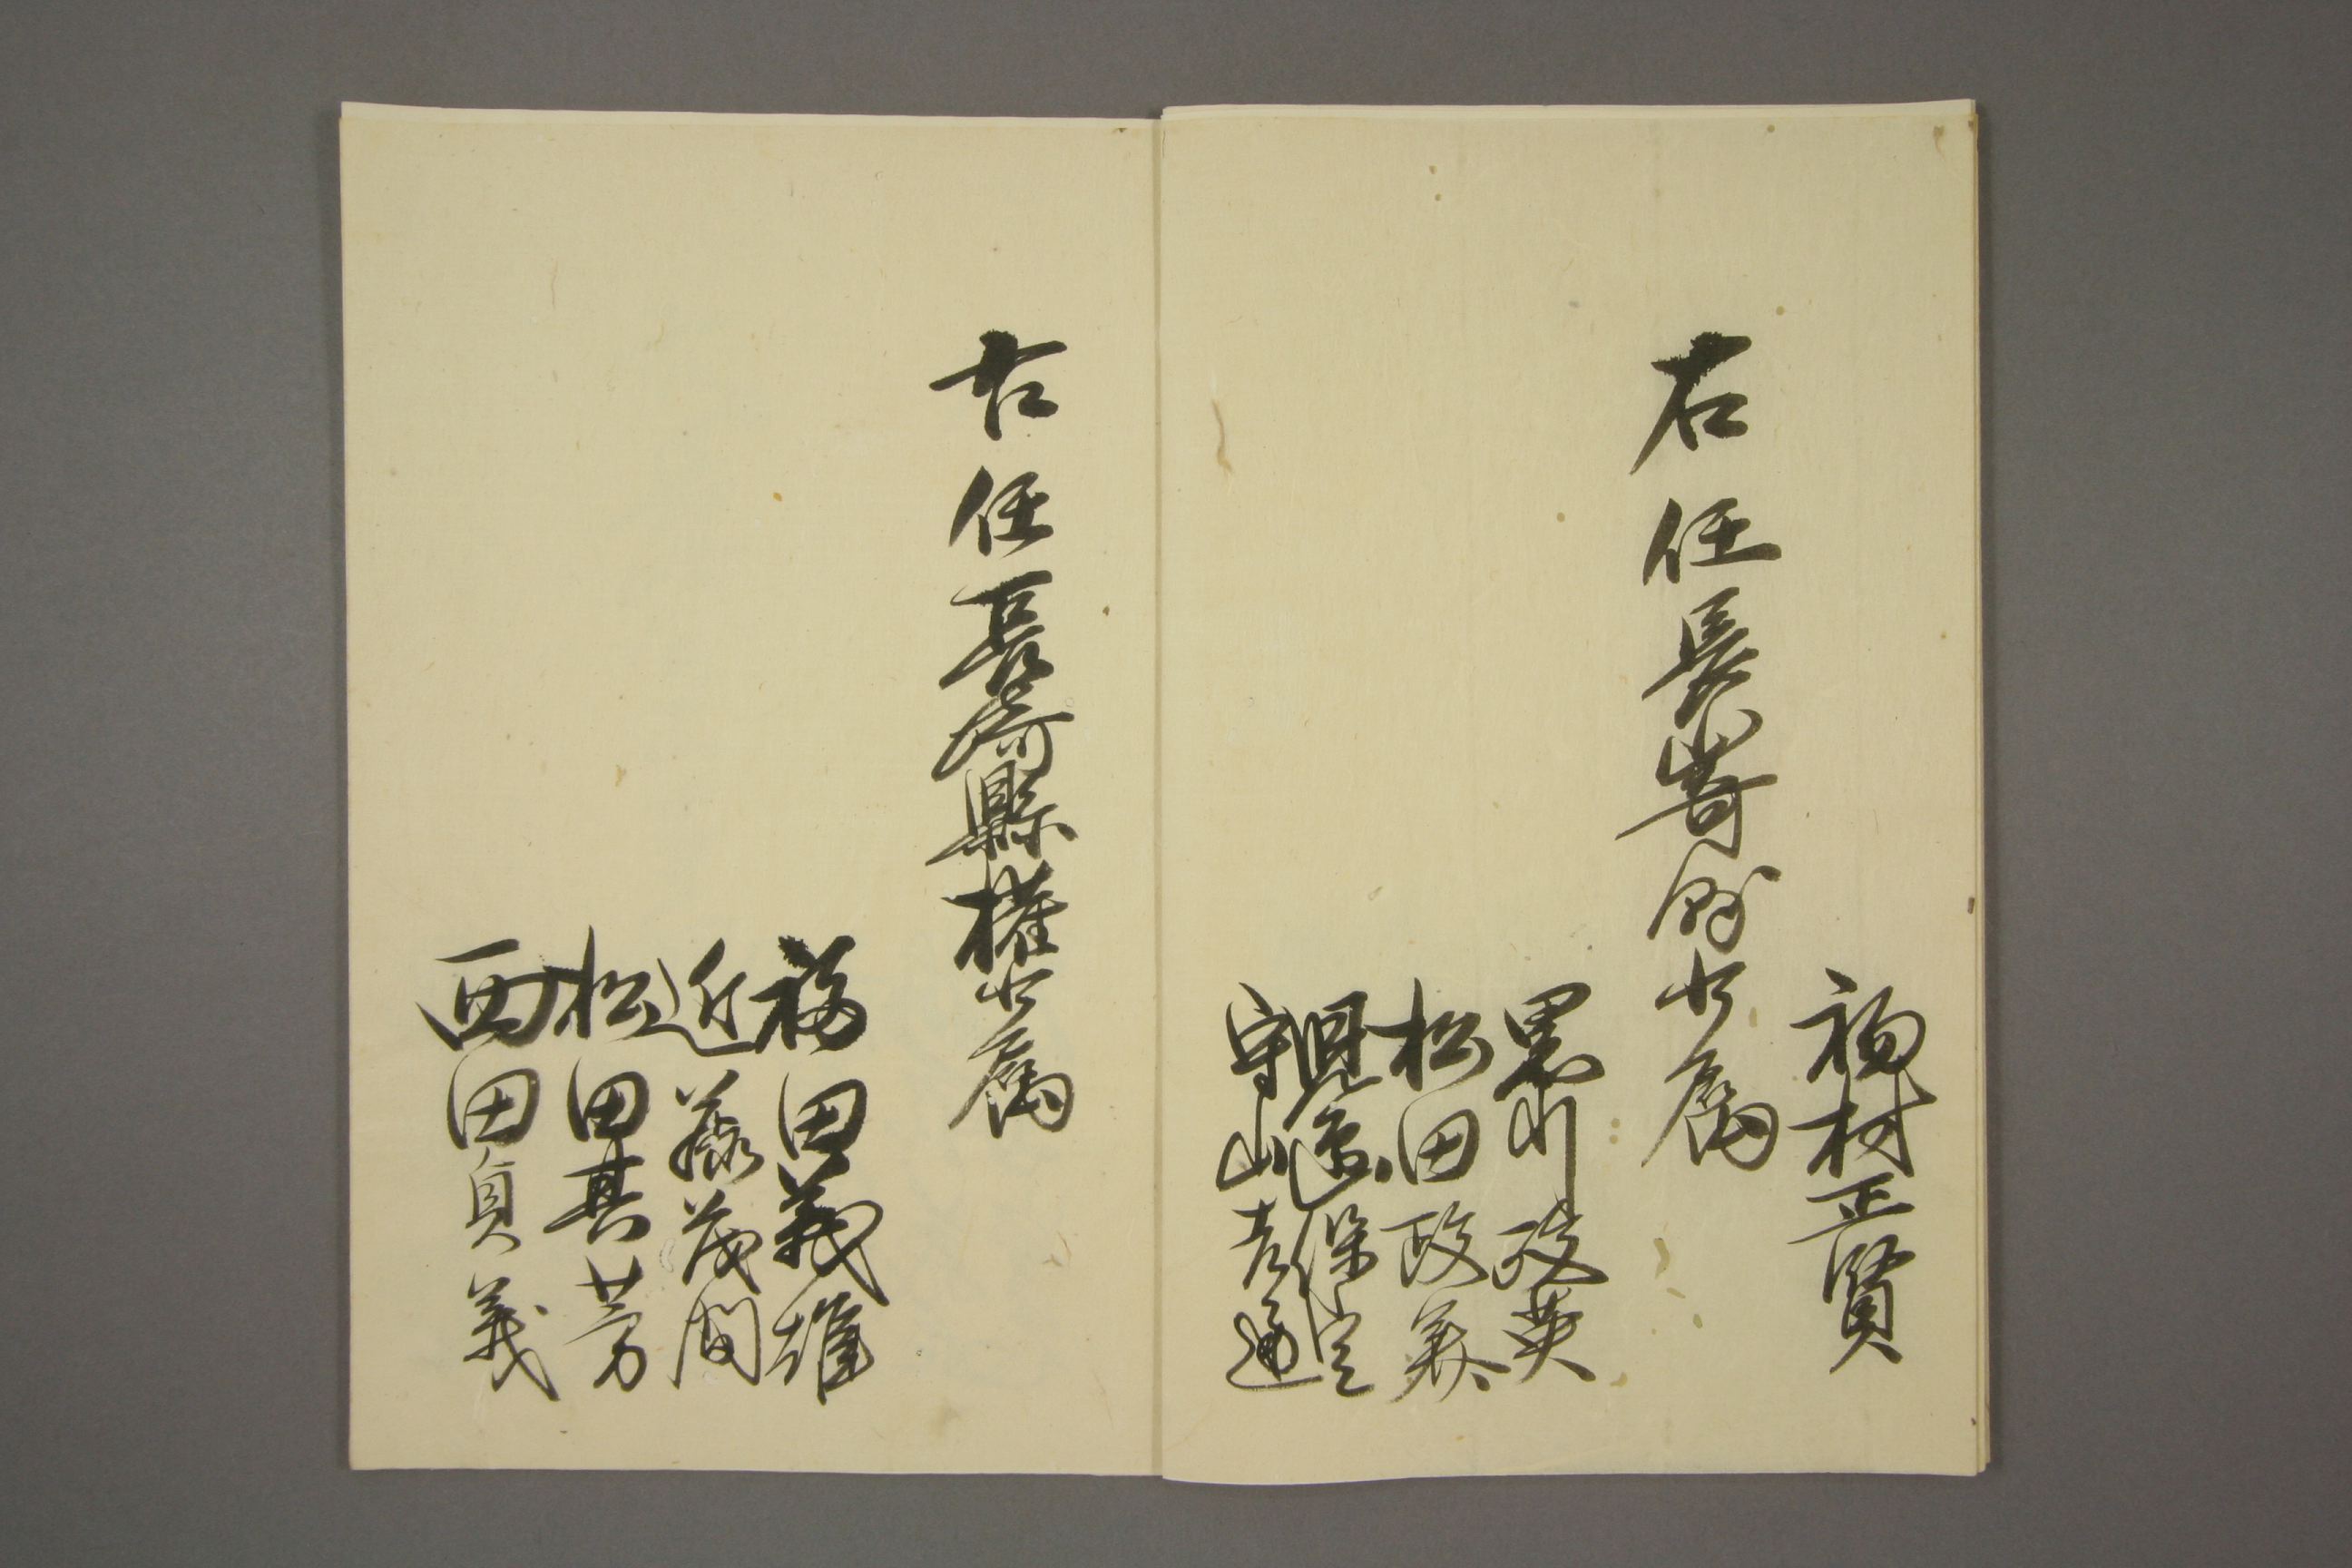 福村正賢
右任長崎縣少属
黒川政英
松田政美
児島保定
守山考通
右任長崎縣権少属
福田義雄
近藤茂間
松田其芳
西田貞義